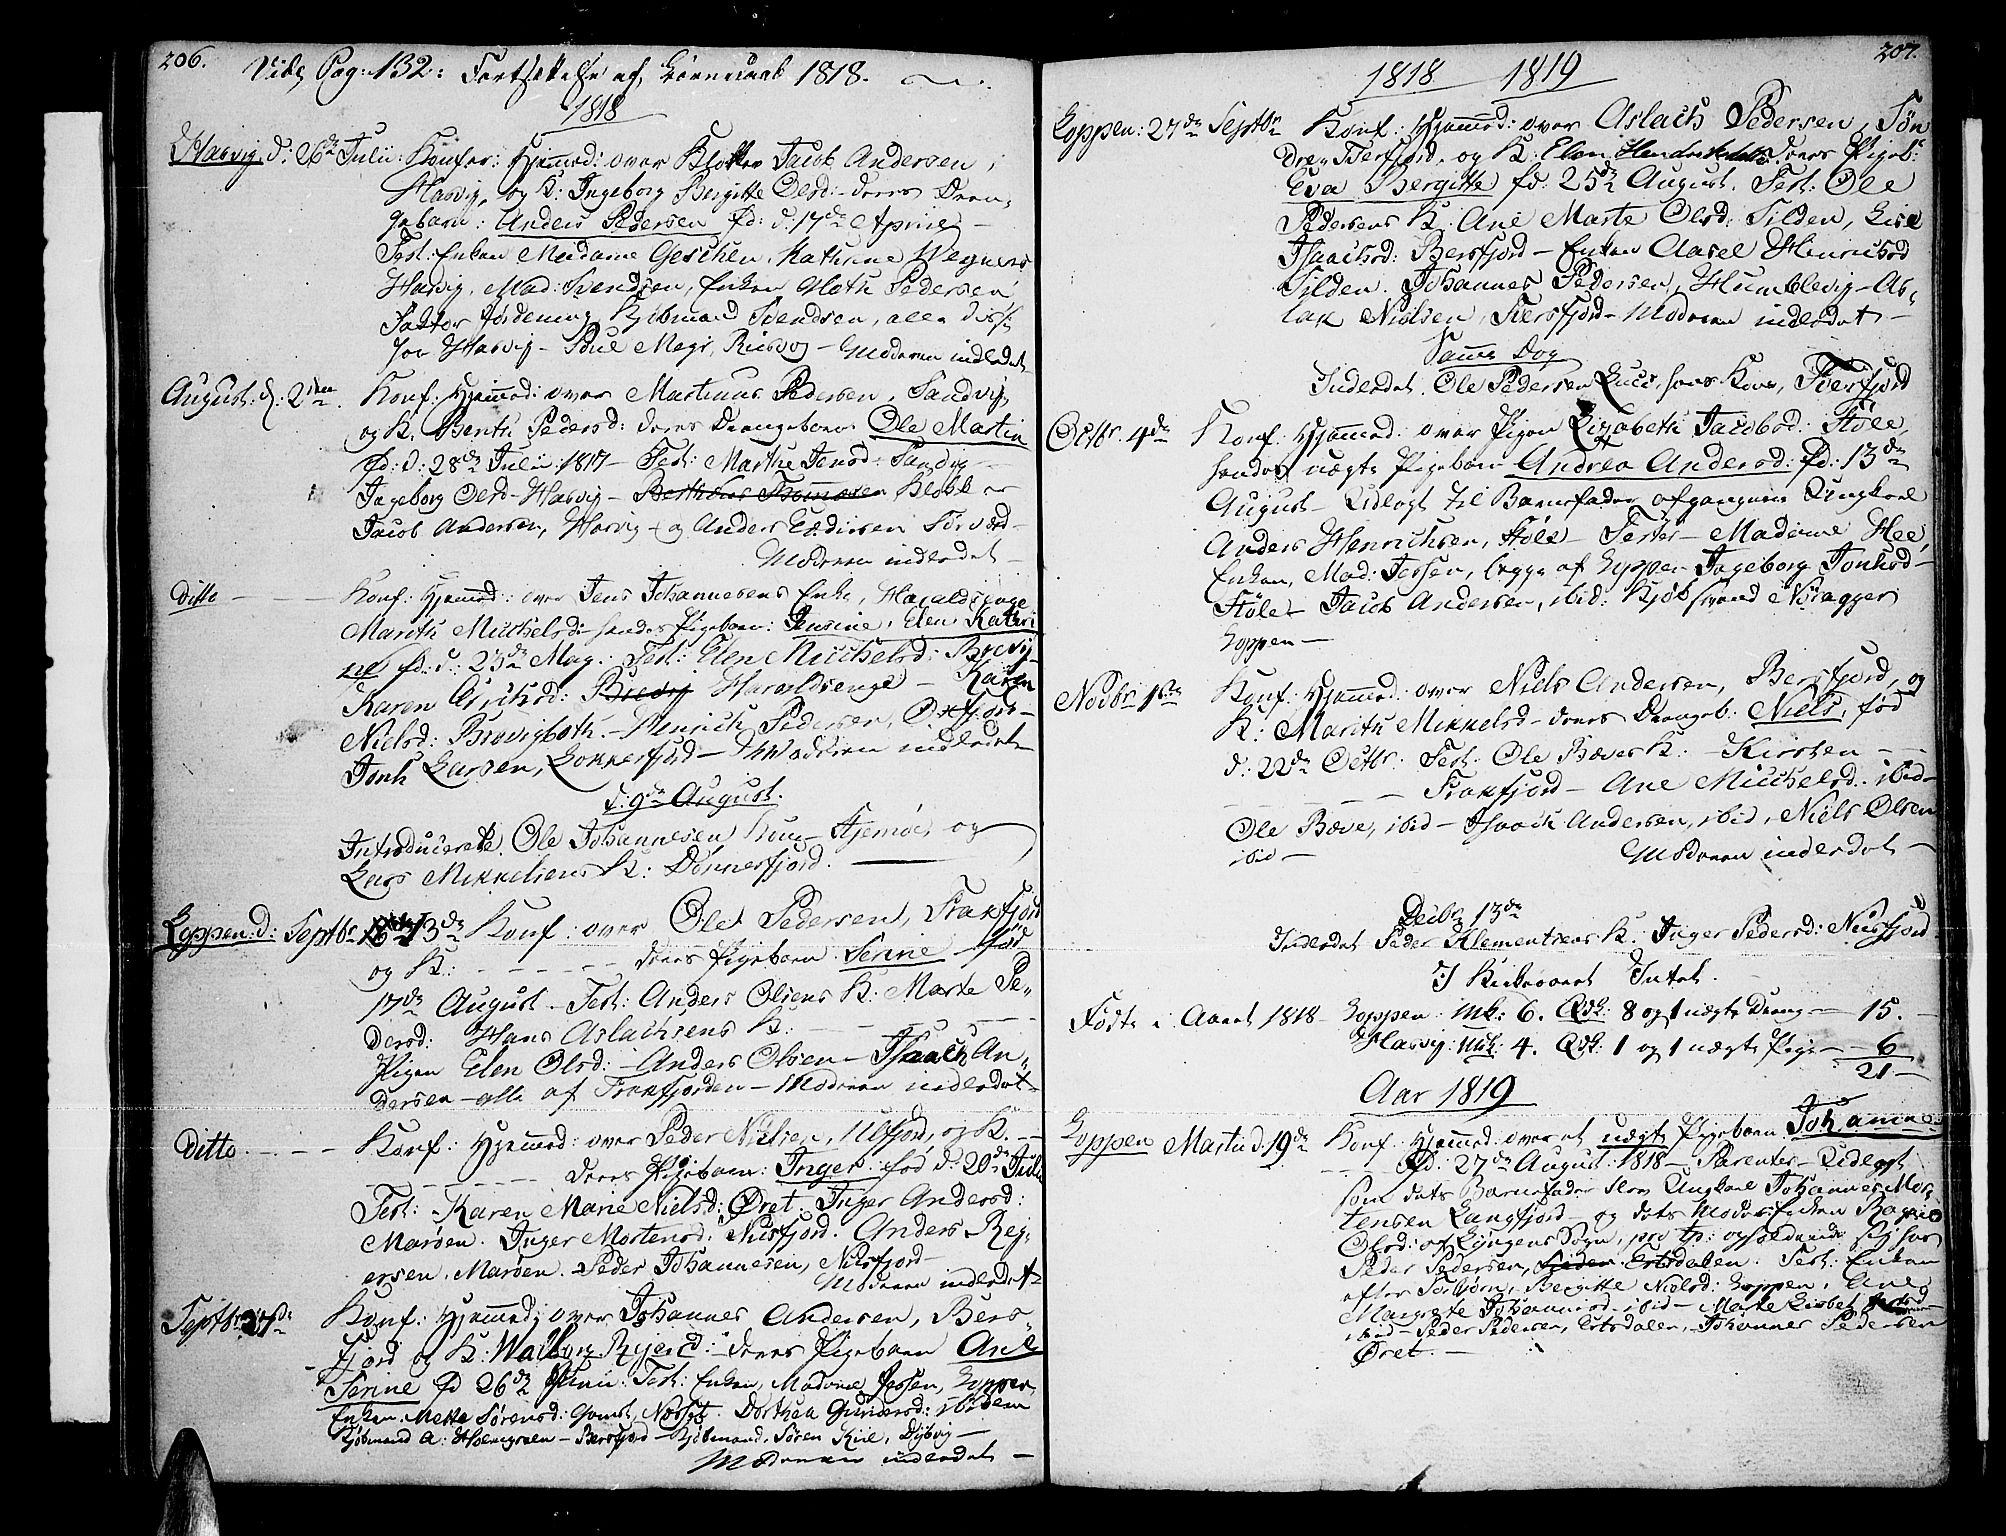 206.
Vide Pag: 132: Fortsættelse af 1818.
1818
Hasvig d: 26de Julii: Konfer: Hjemmed: over Klokker Jacob Andersen,
Hasvig, og K: Ingeborg Bergitte Olsd: deres Dren-
gebarn: Anders Pedersen fød: d: 17de Aprill
Test: Enken Madame Geschen, Kathrine Wegners
Hasvig, Mad: Svendsen, Enken Pedersen
Factor Kjøbmand Svendsen, alle disse
for Hasvig - Poul Moderen indledet
August d: 2den Konf: Hjemmed: over Martinus Pedersen, Sandvig,
og K. Berith Pedersd: deres Drengebarn Ole Martin
fd: d: 28de Julii: 1817 - Test: Marthe Jensd: Sandvig
Ingeborg Olsd - Hasvig - Klokker
Jacob Andersen, Hasvig - og Anders Sørvær -
Moderen indledet -
Ditto Konf: Hjemmed: over Jens Johannesens Enke, Haraldsenge
Marith Michelsd: hendes Pigebarn: Jensine, Elen Kathri
ne fd: d: 23de May: Test: Elen Michelsd: Brevig -
Karen Erichsd: Brevig Haraldsenge - Karen
Nielsd: Brevigboth - Henrich Pedersen, Oxfjord -
Jonh Larsen, Lokkerfjord - Moderen indledet
d: 9de August.
Introducerede Ole Johannesen Kone - Hjemøe, og
Lars Mikkelsens K: Dönnesfjord.
Loppen: d: Septbr 13de Konf: over Ole Pedersen, Frakfjord
og K: - deres Pigebarn Serine fød
17de August - Test: Anders Olsens K: Marte Pe-
dersd: Hans Aslachsens K:
Pigen Elen Olsd: - Anders Olsen - Isaach An-
dersen - alle af Frakfjorden - Moderen indledet
Ditto Konf: Hjemmed: over Peder Nielsen, Nusfjord, og K.
deres Pigebarn: Inger: fød d: 20de Julii
Test: - Karen Marie Nielsd: Øret. Inger Andersd:
Marøen. Inger Mortensd: Nusfjord. Anders Rej-
ersen, Marøen. Peder Johannesen, Nusfjord -
Moderen indledet
Septbr: 27de Konf: Hjemmed: over Johannes Andersen, Bers-
fjord og K: Walborg Rejersd: - deres Pigebarn Ane
Serine fd 26de Junii: Test: Enken, Madame Jessen, Loppen,
Enken Mette Sørensd: Dorthea Gunersd: ibidem
Kjøbmand A: Holmgreen - Bersfjord - Kjøbmand, Søren Kiil, Dybvig -
Moderen indledet -
207.
1818 1819
Loppen: 27de Septbr Konf: Hjemmed: over Aslach Pedersen, Søn
dre Tverfjord, og K: Elen Hendrichsdt deres Pigeb:
Eva Bergitte fd: 25de August. Test: Ole
Pedersens K: Ane Marte Olsd: Silden, Lise
Isaachsd: Bersfjord - Enken Aasel Hinrichsd
Silden. Johannes Pedersen, Humblevig - As-
lak Nielsen, Tversfjord - Moderen indledet -
Samme Dag
Indledet Ole Pedersen hans Kone, Tverfjord
Octbr 4de Konf: Hjemmed: over Pigen Lizabeth Jacobsd: Støle,
hendes uægte Pigebarn Andrea Andersd: fd: 13de
August - Udlagt til Barnefader afgangne Ungkarl
Anders Henrichsen, Støle - Testes - Madame Hee,
Enken, Mad: Jessen, begge af Loppen Ingeborg Jonhsd -
Støle - Jacob Andersen, ibid: Kjøbmand
Loppen -
Novbr 1ste Konf: Hjemmed: over Niels Andersen, Bersfjord, og
K: Marith Mikkelsd - deres Drengeb: Niels, fød
d: 22de Octbr. Test: Ole Bæves K: Kirsten
Frakfjord - Ane Michelsd: ibid -
Ole Bæve, ibid - Isaach Andersen, ibid, Niels Olsen
ibid - Moderen indledet -
Decbr 13de
Indledet Peder Klementsens K: Inger Pedersd: Nusfjord
I Kirkeaaret Intet.
Fødte i Aaret 1818 - Loppen: Mk: 6. Qdk: 8 og 1 uægte Dreng - 15.
Hasvig: Mk: 4. Qdk: 1 og 1 uægte Pige - 6
21 -
Aar 1819
Loppen Martii d: 19de Konf: Hjemmed: over et uægte Pigebarn Johanna
fd: 27de August: 1818 - Parentes - Udlagt
som dets Barnefader Ungkarl Johannes Mor-
tensen Langfjord - og dets Moder: Enken
Olsd: af Lyngens Sogn, pro tp: opholdende sig hos
Peder Pedersen, Ertsdalen. Test: Enken
efter Torbjørn, Bergitte Nielsd: Loppen, Ane
Margrete Johannesd - ibid - Marte Lisbet
ibid - Peder Pedersen, Ertsdalen, - Johannes Pedersen
Øret. -